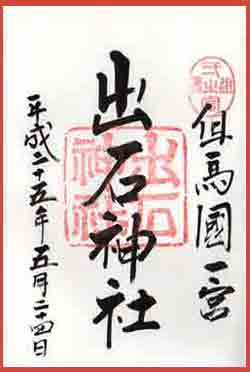 但馬國一宮
出石神社
平成二十五年五月二十四日
出石神社